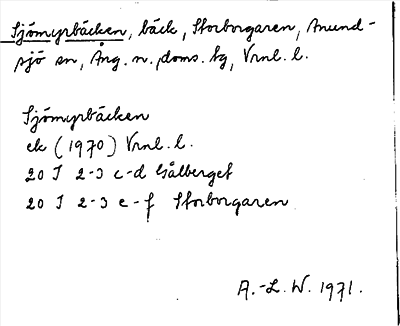 Sjömyrbäcken, bäck, Storborgaren, Anund-
sjö sn, Ång. n. doms. hg, Vrnl. l.
Sjömyrbäcken
ek (1970) Vrnl. l.
20 I 2-3 c-d Gålberget
20 I 2-3 e-f Storborgaren
A.-L. W. 1971.